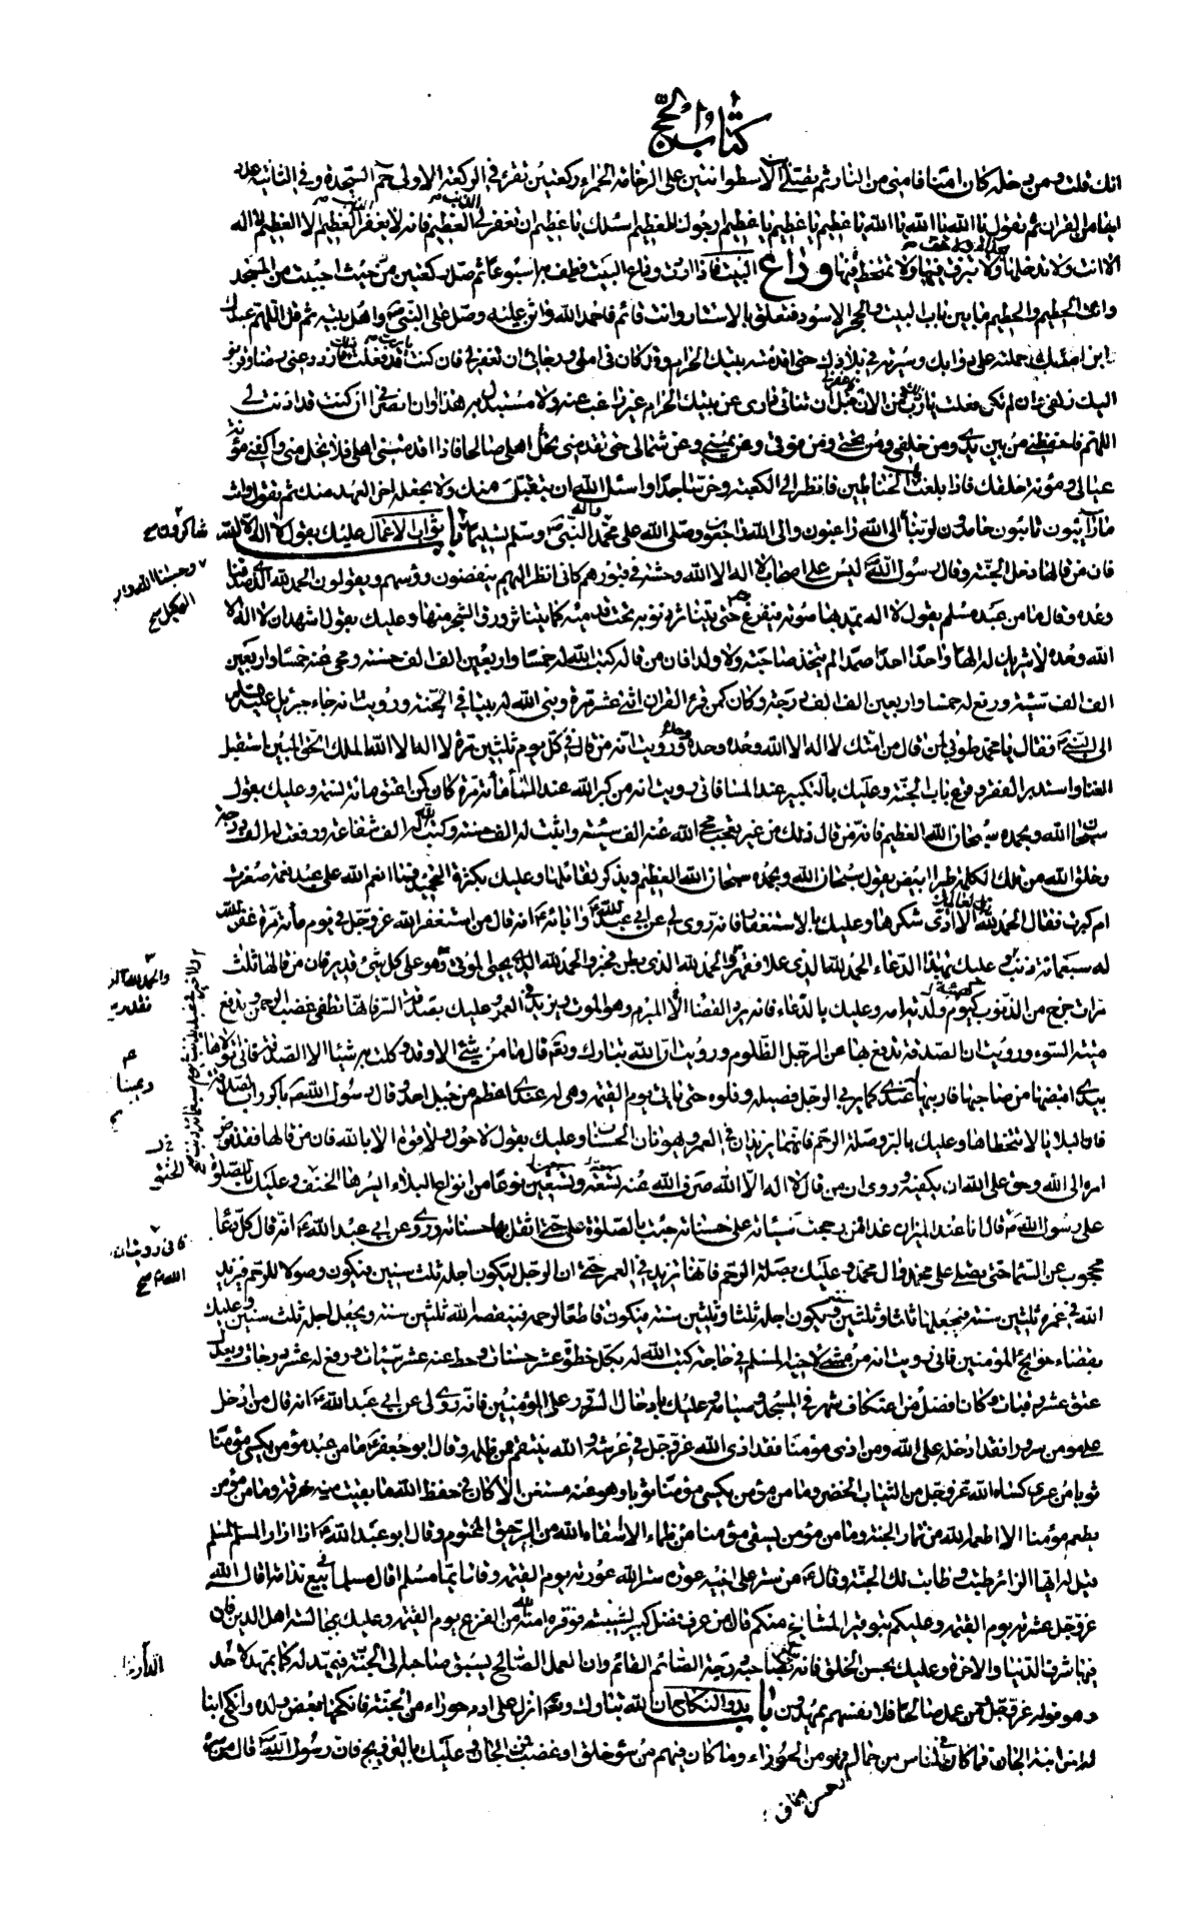 كتاب الحج
انك قلت ومن دخله كان امنا فامنى من النار ثم تصلى بين الاسطوانتين على الرخامة الحمراء ركعتين تقرء في الركعة الاولى حم السجدة وفي الثانية عدد
ايها من القران ثم تقول يا الله يا الله يا الله يا عظيم يا عظيم يا عظيم ارجوك للعظيم اسئلك يا عظيم ان تغفر لي الذنب العظيم فانه لا يغفر الذنب العظيم الا العظيم لا اله
الا انت ولا تدخلها بحذاء ولا خف ولا تبزق فيها ولا تمتخط فيها وداع البيت فاذا اردت وداع البيت فطف به اسبوعا ثم صل ركعتين من حيث احببت من المسجد
وائت الحطيم والحطيم ما بين باب البيت والحجر الاسود فتعلق بالاستار وانت قائم فاحمد الله واثن عليه وصل على النبي واهل بيته ثم قل اللهم عبدك
ابن حملته على دوابك وسيرته في بلادك حتى اقدمته بيتك الحرام وقد كان في املي ورجائي ان تغفر لي فان كنت يا رب قد فعلت فازدد عني رضا وقربني
اليك زلفى وان لم تكن فعلت يا رب فمن الان فاغفر لي قبل ان تنائى داري عن بيتك الحرام غير راغب عنه ولا مستبدل به هذا اوان انصرافي ان كنت قد اذنت لي
اللهم فاحفظني من بين يدي ومن خلفي ومن تحتي ومن فوقي وعن يميني وعن شمالي حتى تقدمني اهلي صالحا فاذا اقدمتني اهلي فلا تخل مني واكفني مؤنة
عيالي ومؤنة خلقك فاذا بلغت باب الحناطين فانظر الى الكعبة وخر ساجدا واسئل الله ان يتقبل منك ولا يجعله اخر العهد منك ثم تقول وانت
مار آيبون تائبون حامدون لربنا الى الله راغبون والى الله راجعون وصلى الله على محمد النبي واله وسلم تسليما باب ثواب الاعمال عليك بقول لا اله الا الله
فان من قالها دخل الجنة وقال رسول الله ليس على اصحاب لا اله الا الله وحشة في قبورهم كاني انظر اليهم ينفضون رؤسهم ويقولون الحمد لله الذي صدقنا
وعده وقال ما من عبد مسلم يقول لا اله يمد بها صوته فيفرغ حتى يتناثر ذنوبه تحت قدميه كما يتناثر ورق الشجر منها وعليك بقول اشهد ان لا اله الا
الله وحده لا شريك له الها واحدا احدا صمدا لم يتخذ صاحبة ولا ولدا فان من قاله كتب الله له خمسا واربعين الف الف حسنة ومحى عنه خمسا واربعين
الف الف سيئة ورفع له خمسا واربعين الف الف درجة وكان كمن قرء القران اثنى عشر مرة وبنى الله له بيتا في الجنة ورويت انه جاء جبرئيل عليه السلم
الى النبي فقال يا محمد طوبى لمن قال من امتك لا اله الا الله وحده وحده وحده ورويت انه من قال في كل يوم ثلثين مرة لا اله الا الله الملك الحق المبين استقبل
الغنا واستدبر الفقر وقرع باب الجنة وعليك بالتكبير عند المسا فاني رويت انه من كبر الله عند المسا مائة مرة كان كمن اعتق مائة نسمة وعليك بقول
سبحان الله وبحمده سبحان الله العظيم فانه من قال ذلك من غير تعجب محى الله عنه الف سيئة واثبت له الف حسنة وكتب له الف شفاعة ورفع له الف درجة
وخلق الله من تلك الكلمة طيرا ابيض يقول سبحان الله وبحمده سبحان الله العظيم ويذكر بقائلها وعليك بكثرة التحميد فما انعم الله على عبد نعمة صغرت
ام كبرت فقال الحمد لله الا ادى شكرها وعليك بالاستغفار فانه روى لي عن ابي عبد الله انه قال من استغفر الله عز وجل في يوم مائة مرة غفر الله
له سبعمائة ذنب وعليك بهذا الدعاء الحمد لله الذي علا فقهر والحمد لله الذي بطن فخبر والحمد لله الذي يحيى الموتى وهو على كل شئ قدير فان من قالها ثلث
مرات خرج من الذنوب كيوم ولدته امه وعليك بالدعاء فانه يرد القضاء المبرم وهو الموت ويزيد في العمر وعليك بصدقة السر فانها تطفى غضب الرحمن وتدفع
ميتة السوء ورويت ان الصدقة تدفع بها عن الرجل الظلوم ورويت ان الله تبارك وتعالى قال ما من شئ الا وقد وكلت به شيئا الا الصدقة فاني
بيدي اقبضها من صاحبها فاربيها عندي كما يربى الرجل فصيله وفلوه حتى ياتي يوم القيمة وهي له عندي اعظم من جبل احد وقال رسول الله باكروا بالصدقة
فان البلايا لا تتخطاها وعليك بالبر وصلة الرحم فانهما يزيدان في العمر ويهونان الحساب وعليك بقول لا حول ولا قوة الا بالله فان من قالها فقد فوض
امره الى الله وحق على الله ان يكفيه وروى ان من قال لا اله الا الله صرف الله عنه تسعة وتسعين نوعا من انواع البلاء ايسرها الخنق وعليك بالصلوة
على رسول الله قال انا عند الميزان غدا فمن رجحت سيئاته على حسناته جئت بالصلوة على حتى اثقل بها حسناته وروى عن ابي عبد الله انه قال كل دعا
محجوب عن السماء حتى يصلى على محمد وال محمد وعليك بصلة الرحم فانها تزيد في العمر حتى ان الرجل ليكون اجله ثلث سنين فيكون وصولا للرحم فيزيد
الله في عمره ثلثين سنة فيجعلها ثلثا وثلثين ويكون اجله ثلثا وثلثين سنة فيكون قاطعا لرحمه فينقصه الله ثلثين سنة ويجعل اجله ثلث سنين وعليك
بقضاء حوائج المؤمنين فاني رويت انه من مشى لاخيه المسلم في حاجة كتب الله له بكل خطوة عشر حسنات وحط عنه عشر سيئات ورفع له عشر درجات ويعدل
عتق عشر رقبات وكان افضل من اعتكاف شهر في المسجد وصيامه وعليك بادخال السرور على المؤمنين فانه روى لي عن ابي عبد الله انه قال من ادخل
على مؤمن سرورا فقد ادخله على الله ومن اذى مؤمنا فقد اذى الله عز وجل في عرشه والله ينتقم ممن ظلمه وقال ابو جعفر ما من عبد مؤمن يكسى مؤمنا
ثوبا من عرى الا كساه الله عز وجل من الثياب الخضر وما من مؤمن يكسى مؤمنا ثوبا وهو عنه مستغن الا كان في حفظ الله ما بقيت منه خرقة وما من مؤمن
يطعم مؤمنا الا اطعمه الله من ثمار الجنة وما من مؤمن يسقى مؤمنا من ظماء الا سقاه الله من الرحيق المختوم وقال ابو عبد الله اذا زار المسلم المسلم
قيل له ايها الزائر طبت وطابت لك الجنة وقال من ستر على اخيه عورة ستر الله عورته يوم القيمة وقال ايما مسلم اقال مسلما في بيع ندامة اقال الله
عز وجل عشرته يوم القيمة وعليكم بتوقير المشايخ منكم قال من عرف فضل كبير لشيبته فوقره امنه الله من الفزع يوم القيمة وعليك بمجالسة اهل الدين فان
فيها شرف الدنيا والاخرة وعليك بحسن الخلق فانه يبلغ صاحبه درجة الصائم القائم وان العمل الصالح ليسبق صاحبه الى الجنة فيمهد له كما يمهد لاحد
وهو قوله عز وجل ومن عمل صالحا فلانفسهم يمهدون باب بدو النكاح ان الله تبارك وتعالى انزل على ادم حوراء من الجنة فانكحها بعض ولده وانكح ابنا
له اخر ابنة الجان فما كان في الناس من جمال فهو من الحوراء وما كان فيهم من سوء خلق او غضب فمن الجان وعليك بالتزويج فان رسول الله قال من
شاكرون
وحسبنا الله ونعم الوكيل
والحمد لله الذي ملك فقدر
ويمينا
الخنق
فاني رويت ان الله